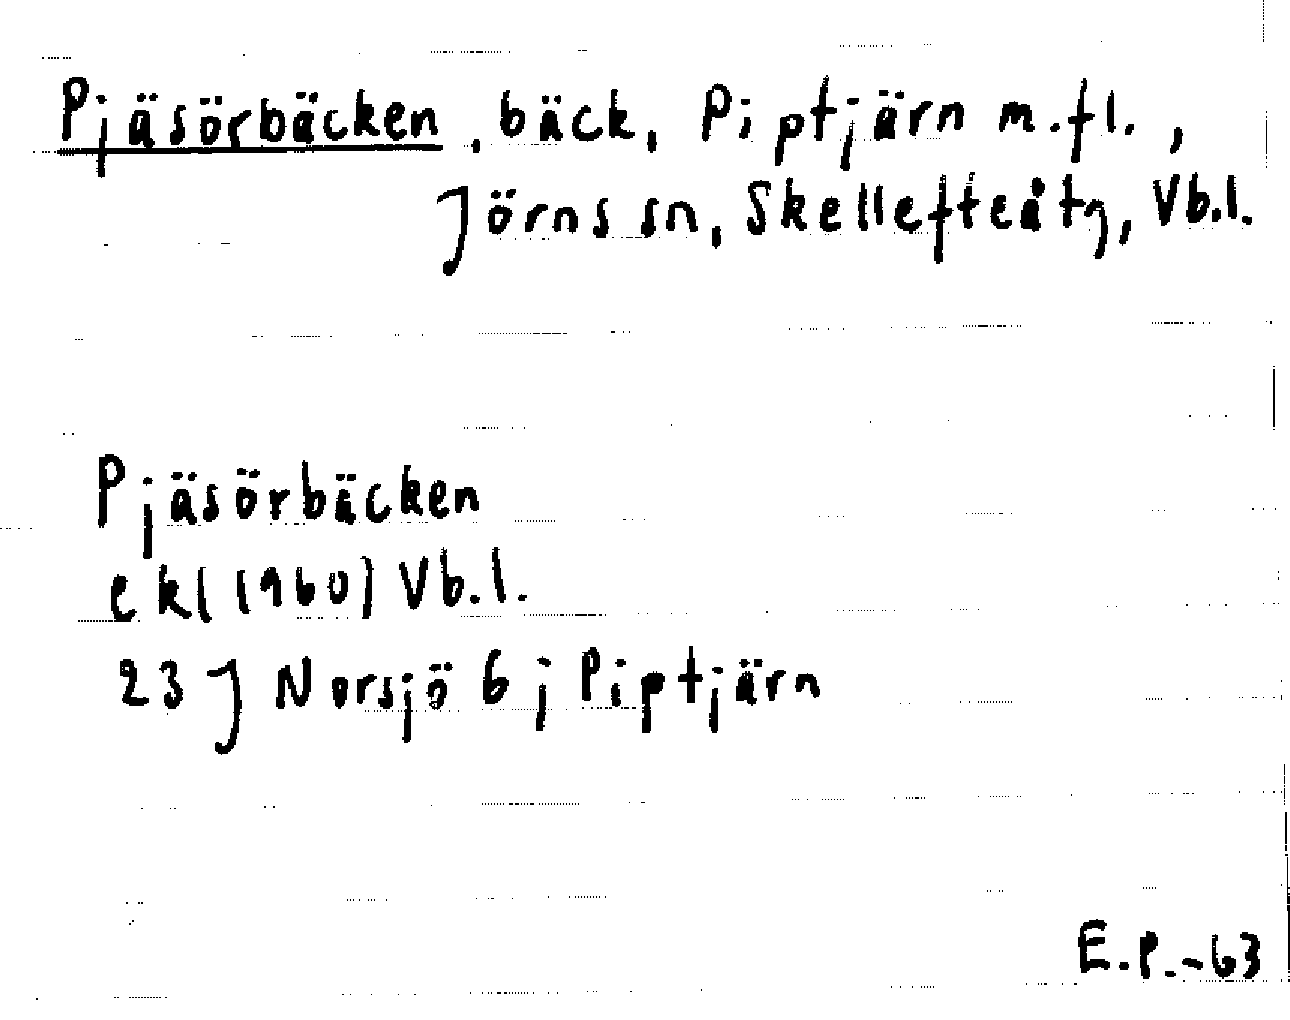 Pjäsörbäcken, bäck, Piptjärn m.fl.,
Jörns sn, Skellefteå tg, Vb.l.
Pjäsörbäcken
ekl (1960) Vb.l.
23 J Norsjö 6 j Piptjärn
E.P.-63